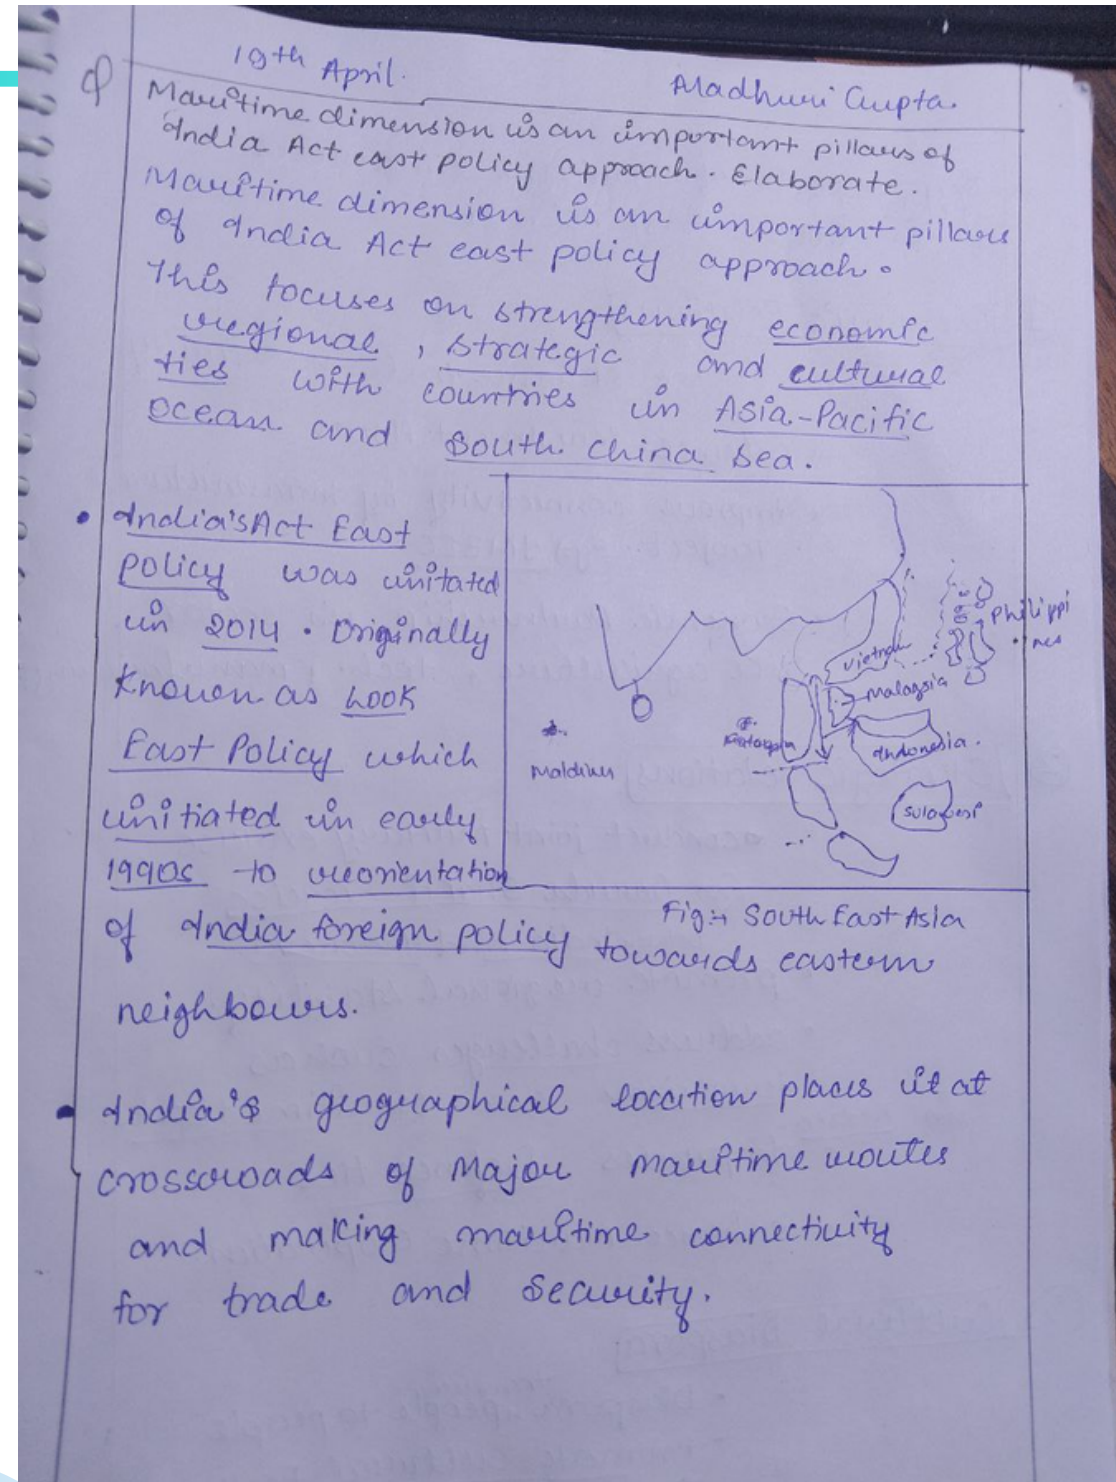 19th April.
Madhuri Gupta.
Q
Maritime dimension is an important pillars of
India Act east policy approach. Elaborate.
Maritime dimension is an important pillars
of India Act east policy approach.
This focuses on strengthening economic
regional, strategic and cultural
ties with countries in Asia-Pacific
ocean and South China Sea.
• India's Act East
policy was initated
in 2014. Originally
known as Look
East Policy which
initiated in early
1990s to reorientation
of India foreign policy towards eastern
neighbours.
Philippi
nes
Vietnam
Malaysia
Indonesia.
Maldives
Sulawesi
Fig:- South East Asia
• India's geographical location places it at
crossroads of Major maritime routes
and making maritime connectivity
for trade and security.